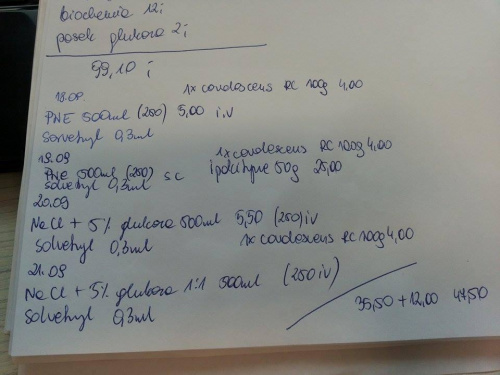 biochemia 12,-
pasek glukoza 2,-
99,10,-
1x convalescens RC 100g 4,00
18.09
PNE 500ml (250) 5,00 i.v
Solvertyl 0,3ml
1x convalescens RC 100g 4,00
19.09
PNE 500ml (250) sc ipakityne 50g 25,00
Solvertyl 0,3ml
20.09
NaCl + 5% glukoza 500ml 5,50 (250)iv
Solvertyl 0,3ml 1x convalescens RC 100g 4,00
21.09
NaCl + 5% glukoza 1:1 500ml (250iv)
Solvertyl 0,3ml
35,50 + 12,00 47,50